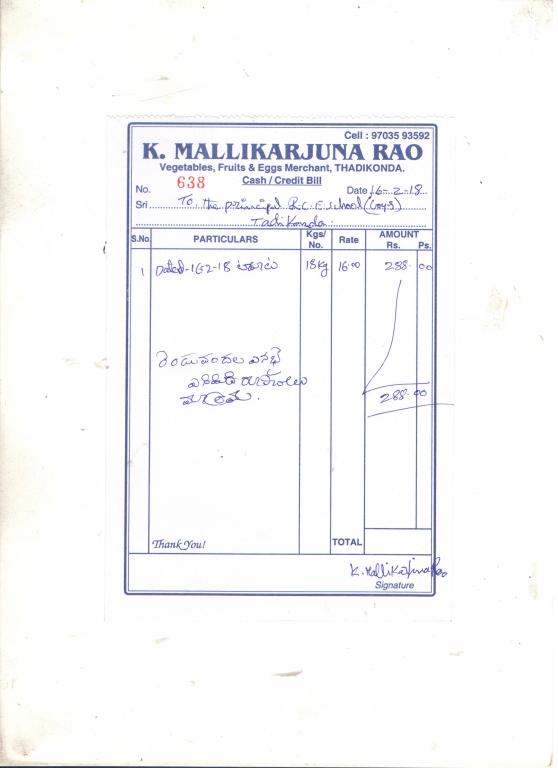 Cell : 97035 93592
K. MALLIKARJUNA RAO
Vegetables, Fruits & Eggs Merchant, THADIKONDA.
Cash / Credit Bill
No. 638 Date 16-2-18
Sri To, the principal (Boys)
Tadikonda.
S.No. PARTICULARS Kgs/ No. Rate AMOUNT Rs. Ps.
1 Dated-16-2-18 18kg 16.00 288.00
రెండువందల ఎనభై
ఎనిమిది రూపాయలు
మాత్రమే.
288.00
Thank You! TOTAL
K. Mallikarjuna Rao
Signature